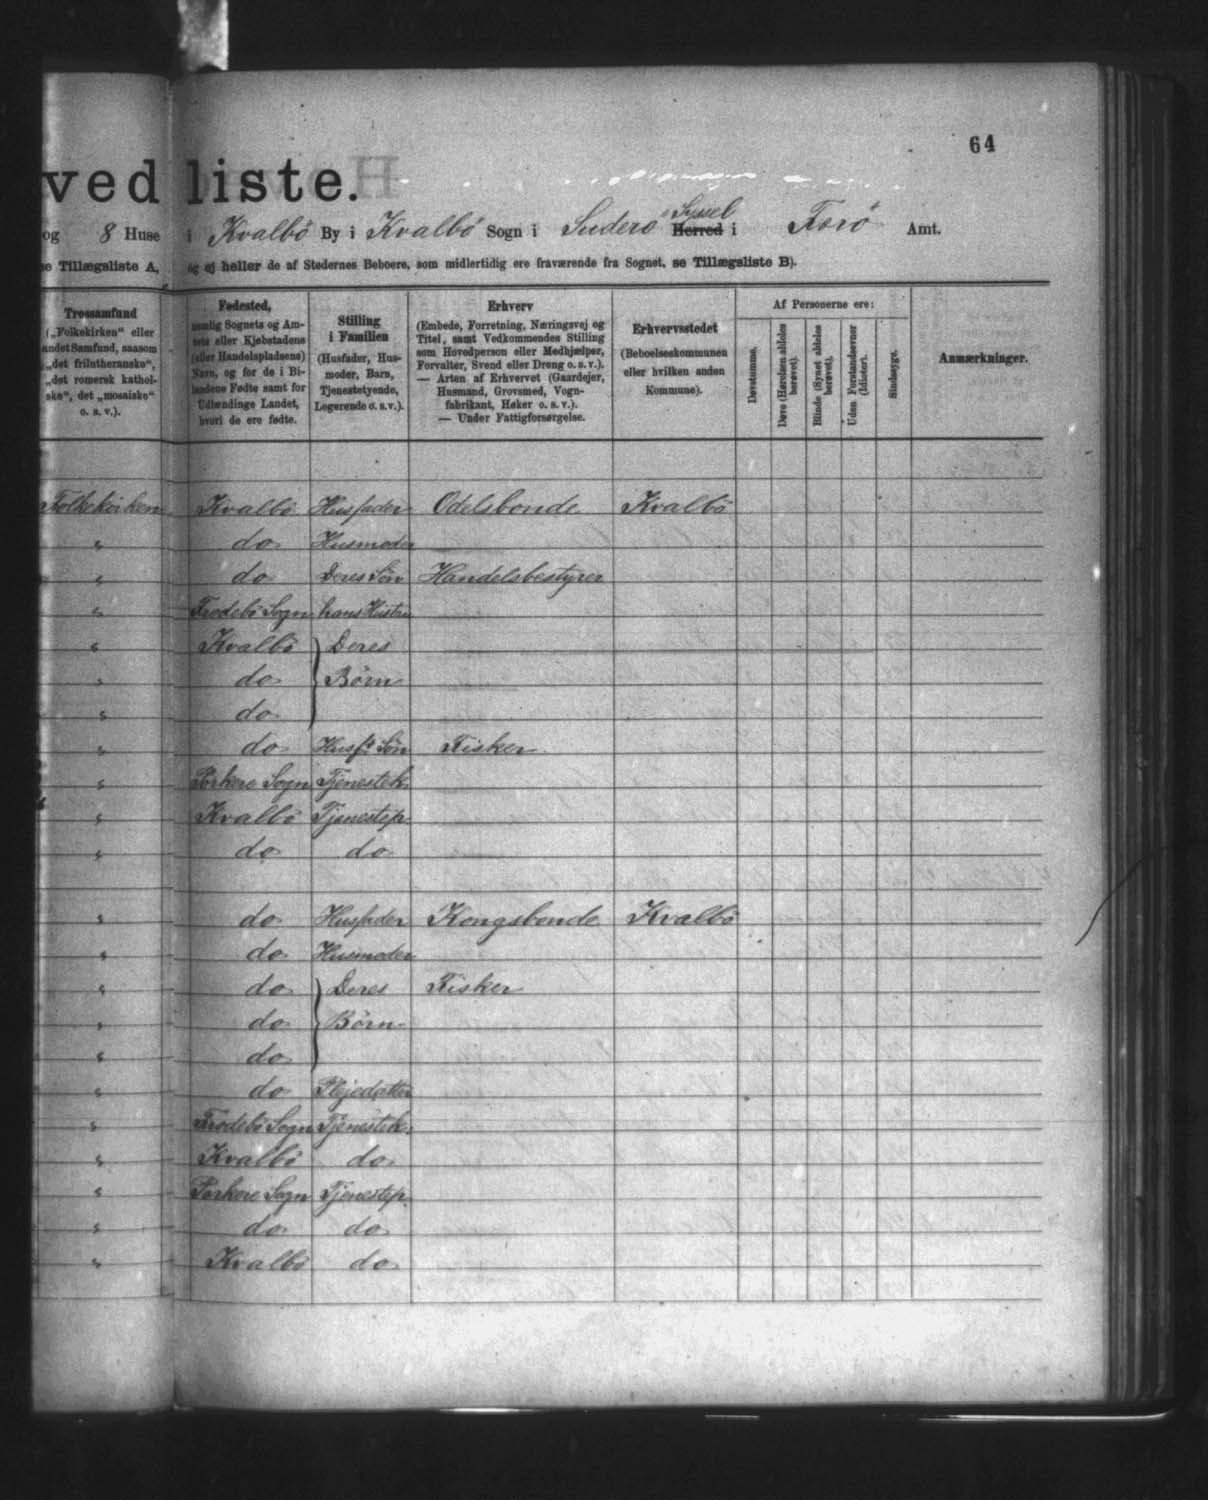 64
ved liste.
og 8 Huse i Kvalbö By i Kvalbö Sogn i Suderö Syssel Herred i Færö Amt.
se Tillægsliste A, og ej heller de af Stedernes Beboere, som midlertidig ere fraværende fra Sognet, se Tillægsliste B).
Trossamfund
(„Folkekirken“ eller
andet Samfund, saasom
„det frilutheranske“,
„det romersk kathol-
ske“, det „mosaiske“
o. s. v.).
Fødested,
nemlig Sognets og Am-
tets eller Kjøbstadens
(eller Handelspladsens)
Navn, og for de i Bi-
landene Fødte samt for
Udlændinge Landet,
hvori de ere fødte.
Stilling
i Familien
(Husfader, Hus-
moder, Barn,
Tjenestetyende,
Logerende o. s. v.).
Erhverv
(Embede, Forretning, Næringsvej og
Titel, samt Vedkommendes Stilling
som Hovedperson eller Medhjælper,
Forvalter, Svend eller Dreng o. s. v.).
— Arten af Erhvervet (Gaardejer,
Husmand, Grovsmed, Vogn-
fabrikant, Høker o. s. v.).
— Under Fattigforsørgelse.
Erhvervsstedet
(Beboelseskommunen
eller hvilken anden
Kommune).
Af Personerne ere:
Døvstumme.
Døve (Hørelsen aldeles berøvet).
Blinde (Synet aldeles berøvet).
Uden Forstandsevner (Idioter).
Sindssyge.
Anmærkninger.
Folkekirken Kvalbö Husfader Odelsbonde Kvalbö
" do Husmoder
" do Deres Sön Handelsbestyrer
" Frodebö Sogn hans Hustru
" Kvalbö Deres
" do Börn
" do
" do Husf. Sön Fisker
" Porkere Sogn Tjenestek.
" Kvalbö Tjenestep.
" do do
" do Husfader Kongsbonde Kvalbö
" do Husmoder
" do Deres Fisker
" do Börn
" do
" do Plejedatter
" Frodebö Sogn Tjenestek.
" Kvalbö do
" Porkere Sogn Tjenestep.
" do do
" Kvalbö do